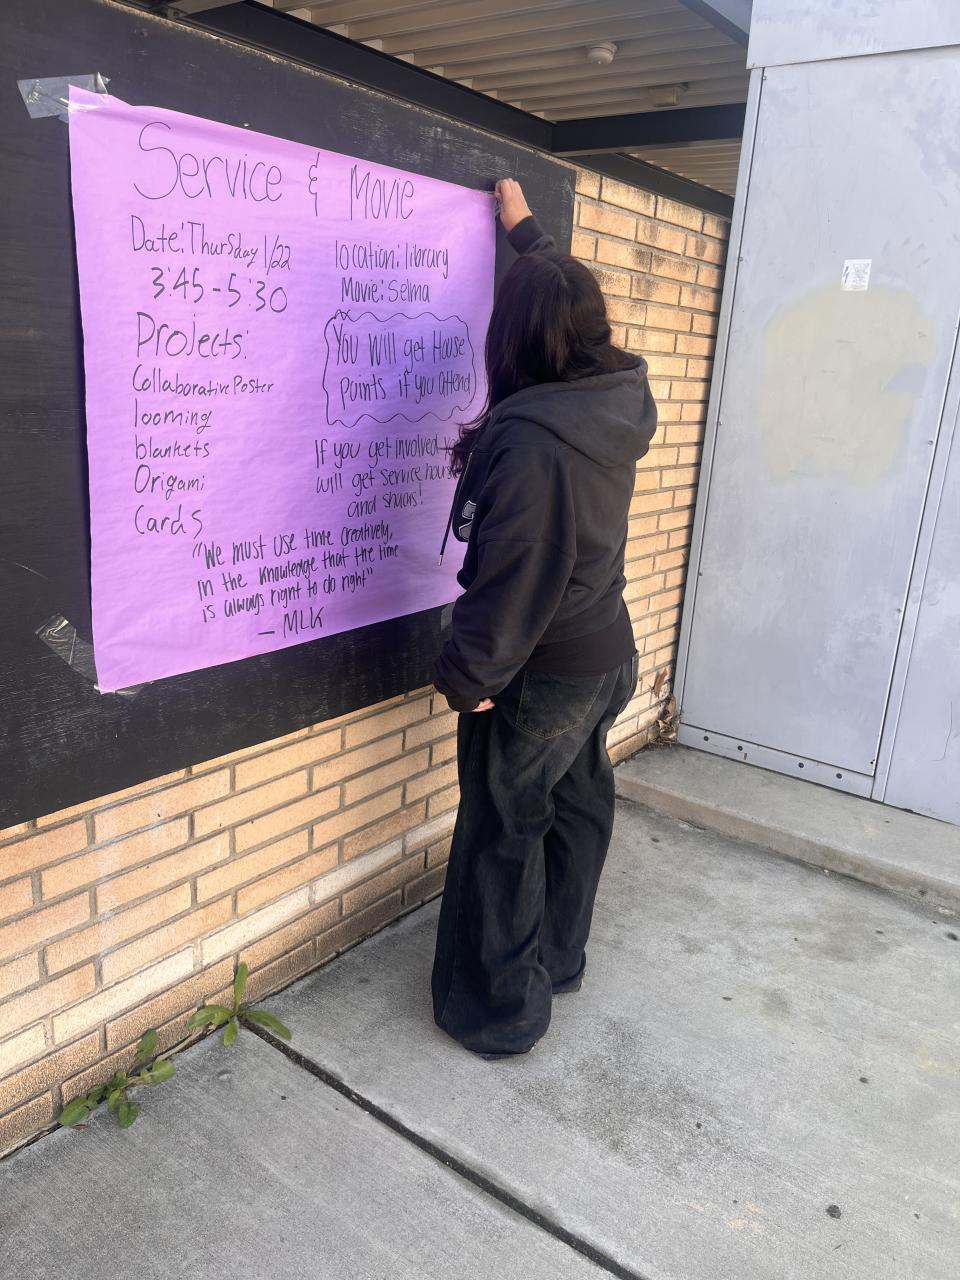 Service & Movie
Date: Thursday 1/22
3:45-5:30
Projects:
Collaborative Poster
looming
blankets
Origami
Cards
location: library
Movie: Selma
You Will get House
Points if you attend
If you get involved
will get service hours
and snacks!
"We must use time creatively,
in the knowledge that the time
is always right to do right"
- MLK